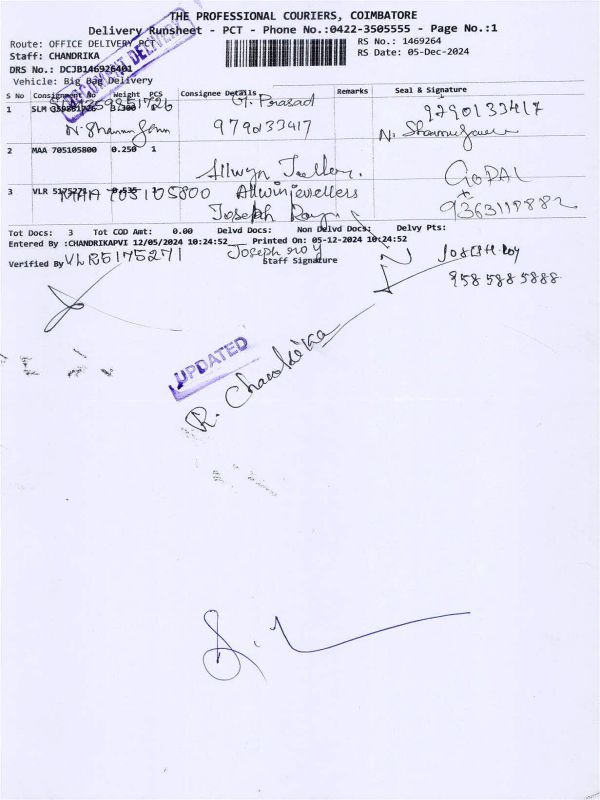 THE PROFESSIONAL COURIERS, COIMBATORE
Delivery Runsheet - PCT - Phone No.:0422-3505555 - Page No.:1
Route: OFFICE DELIVERY PCT RS No.: 1469264
Staff: CHANDRIKA RS Date: 05-Dec-2024
DRS No.: DCJB146926401
Vehicle: Big Bag Delivery
DELIVERY
S No Consignment No Weight PCS Consignee Details Remarks Seal & Signature
1 SLM 359851726 3.300 G. Prasad
N. 979033417 9790133417
2 MAA 705105800 0.250 1
Allwyn GOPAL
3 VLR 5175271 0.535
MAA 705105800 Allwin jewellers 9363118882
Joseph
Tot Docs: 3 Tot COD Amt: 0.00 Delvd Docs: Non Delvd Docs: Delvy Pts:
Entered By :CHANDRIKAPVI 12/05/2024 10:24:52 Printed On: 05-12-2024 10:24:52
Verified By VLR5175271 Joseph roy
Staff Signature
JOSEPH Roy
958 588 5888
UPDATED
R. Chandrika